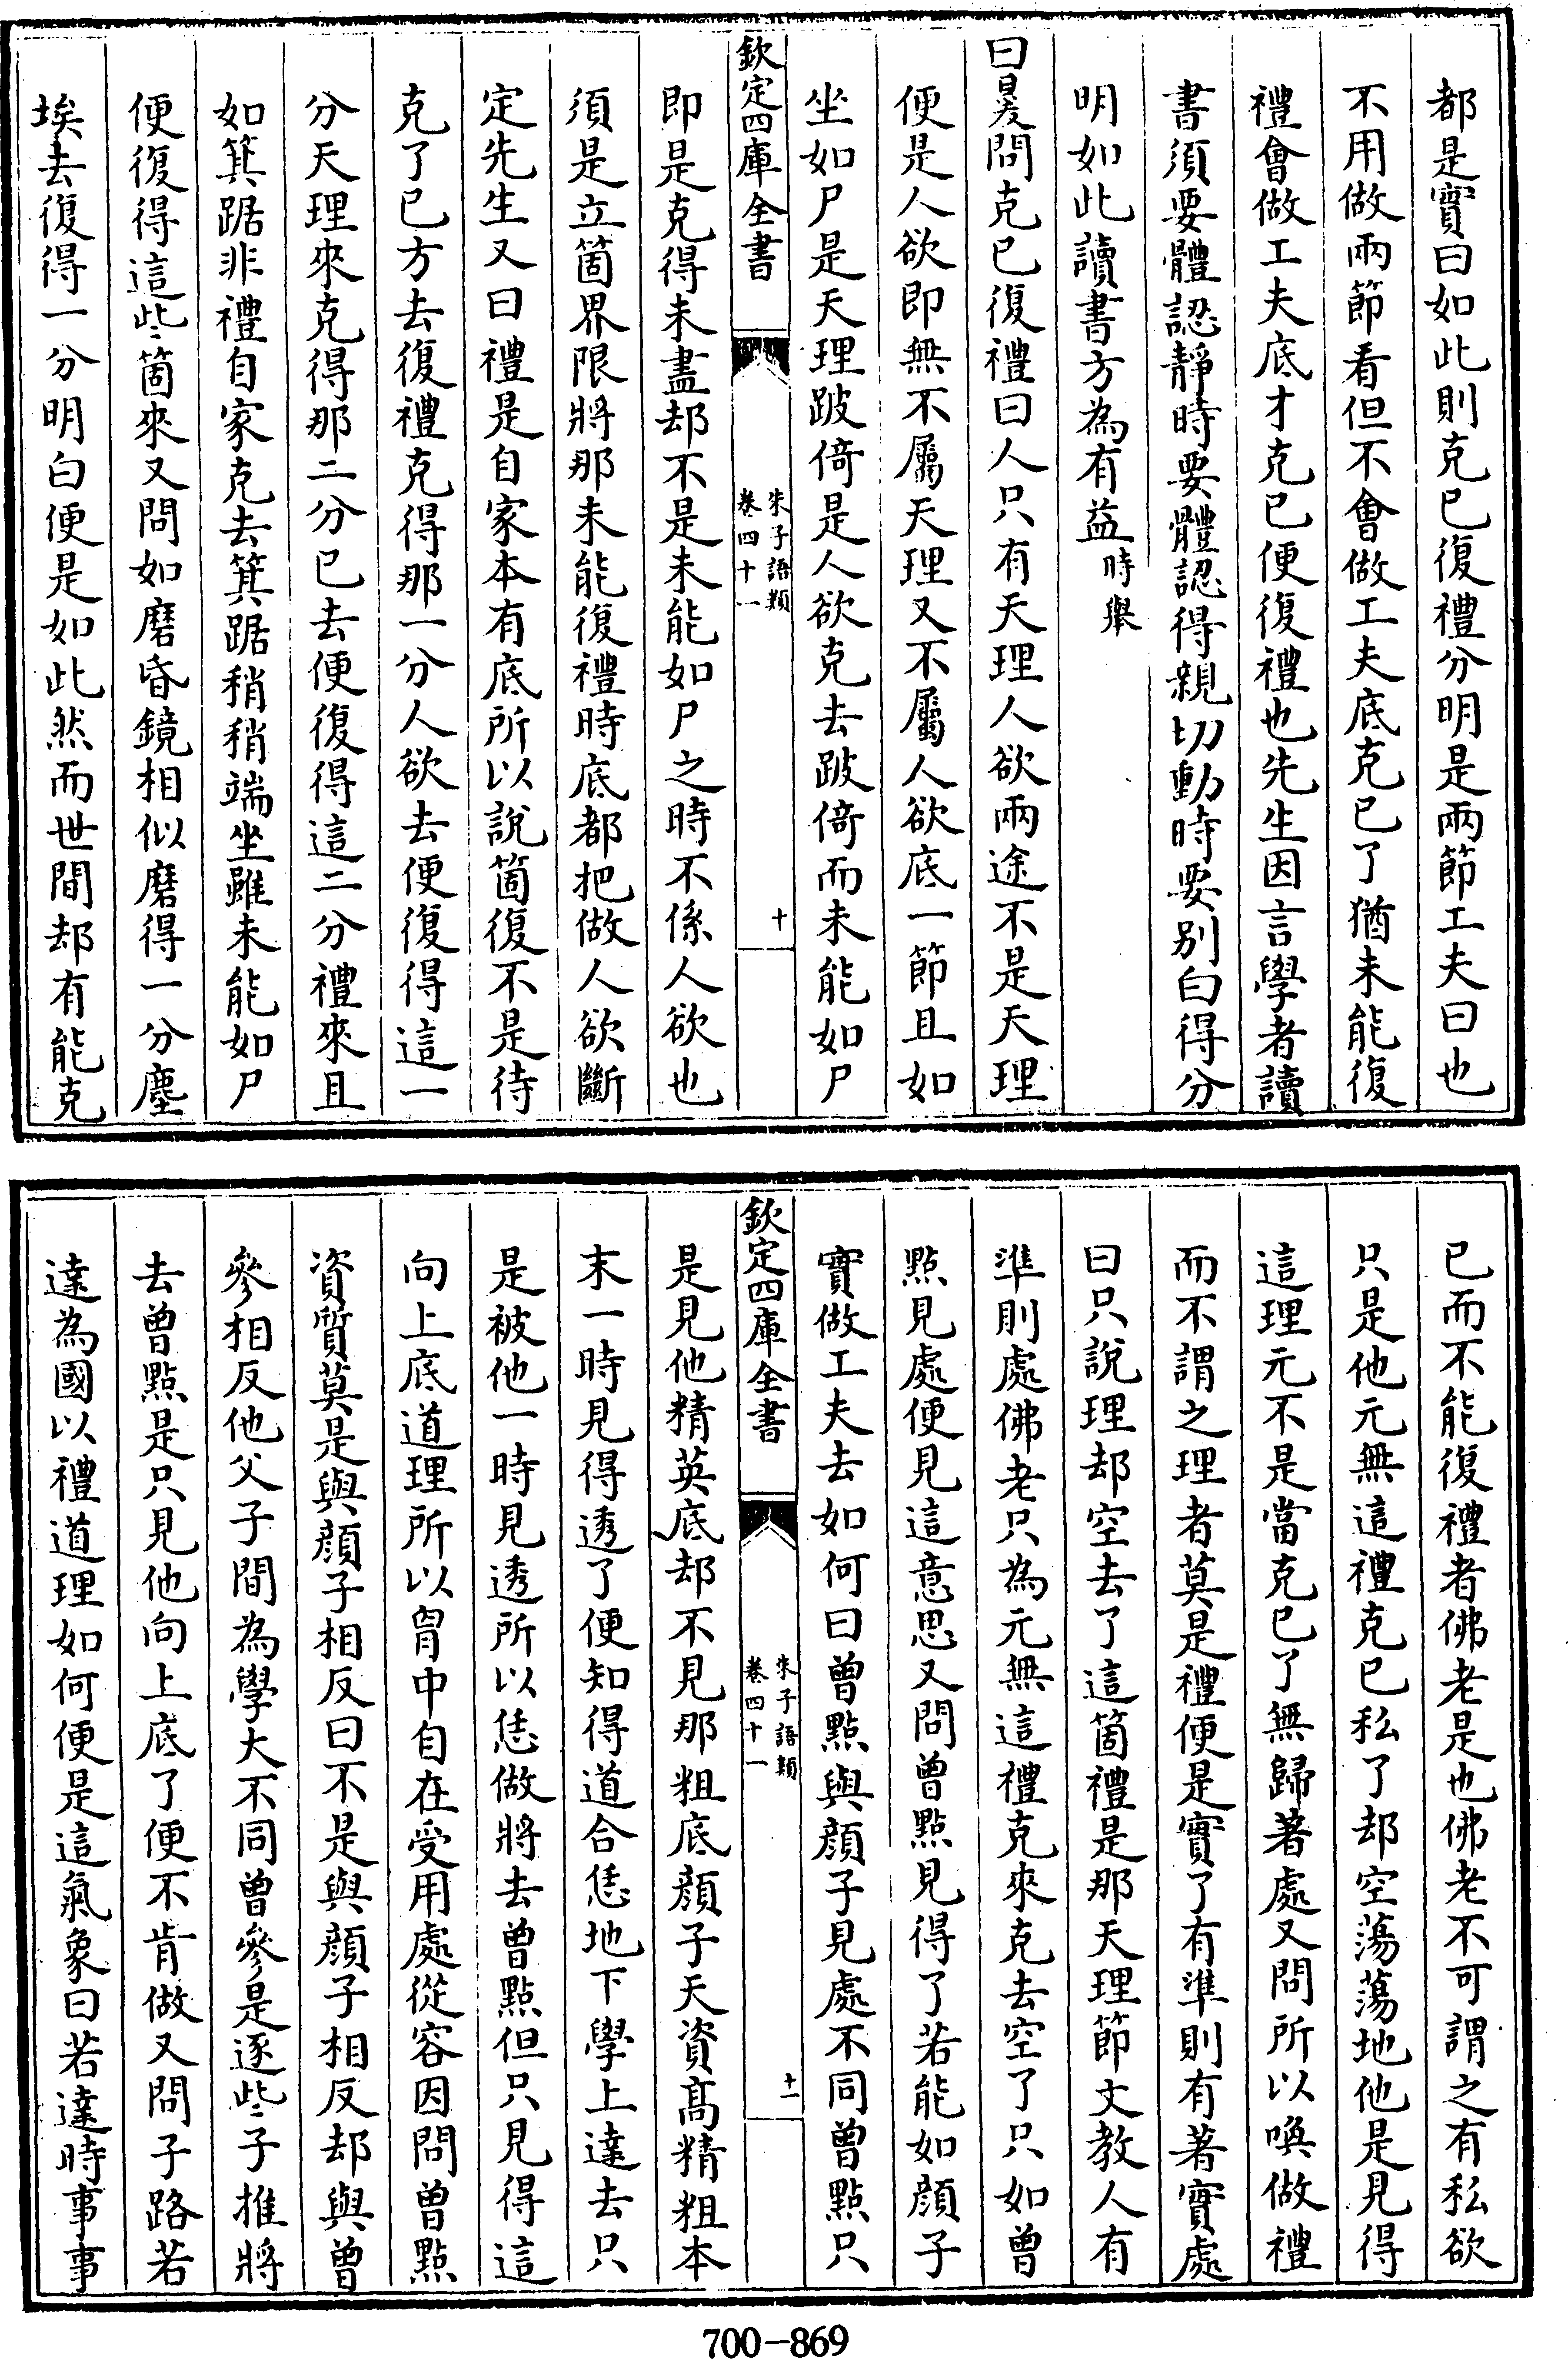 都是實曰如此則克已復禮分明是兩節工夫曰也
不用做兩節看但不會做工夫底克已了猶未能復
禮會做工夫底才克已便復禮也先生因言學者讀
書須要體認靜時要體認得親切動時要别白得分
明如此讀書方為有益時舉
曰㬊問克已復禮曰人只有天理人欲兩途不是天理
便是人欲即無不屬天理又不屬人欲底一節且如
坐如尸是天理跛倚是人欲克去跛倚而未能如尸
欽定四庫全書
朱子語類
卷四十一
十
即是克得未盡却不是未能如尸之時不係人欲也
須是立箇界限將那未能復禮時底都把做人欲斷
定先生又曰禮是自家本有底所以說箇復不是待
克了已方去復禮克得那一分人欲去便復得這一
分天理來克得那二分已去便復得這二分禮來且
如箕踞非禮自家克去箕踞稍稍端坐雖未能如尸
便復得這些箇來又問如磨昏鏡相似磨得一分塵
埃去復得一分明曰便是如此然而世間却有能克
已而不能復禮者佛老是也佛老不可謂之有私欲
只是他元無這禮克已私了却空蕩蕩地他是見得
這理元不是當克已了無歸著處又問所以喚做禮
而不謂之理者莫是禮便是實了有準則有著實處
曰只說理却空去了這箇禮是那天理節文教人有
準則處佛老只為元無這禮克來克去空了只如曾
點見處便見這意思又問曾點見得了若能如顔子
實做工夫去如何曰曾點與顔子見處不同曾點只
欽定四庫全書
朱子語類
卷四十一
十一
是見他精英底却不見那粗底顔子天資高精粗本
末一時見得透了便知得道合恁地下學上達去只
是被他一時見透所以恁做將去曾點但只見得這
向上底道理所以胷中自在受用處從容因問曾點
資質莫是與顔子相反曰不是與顔子相反却與曾
參相反他父子間為學大不同曾參是逐些子推將
去曾點是只見他向上底了便不肯做又問子路若
達為國以禮道理如何便是這氣象曰若達時事事
700-869